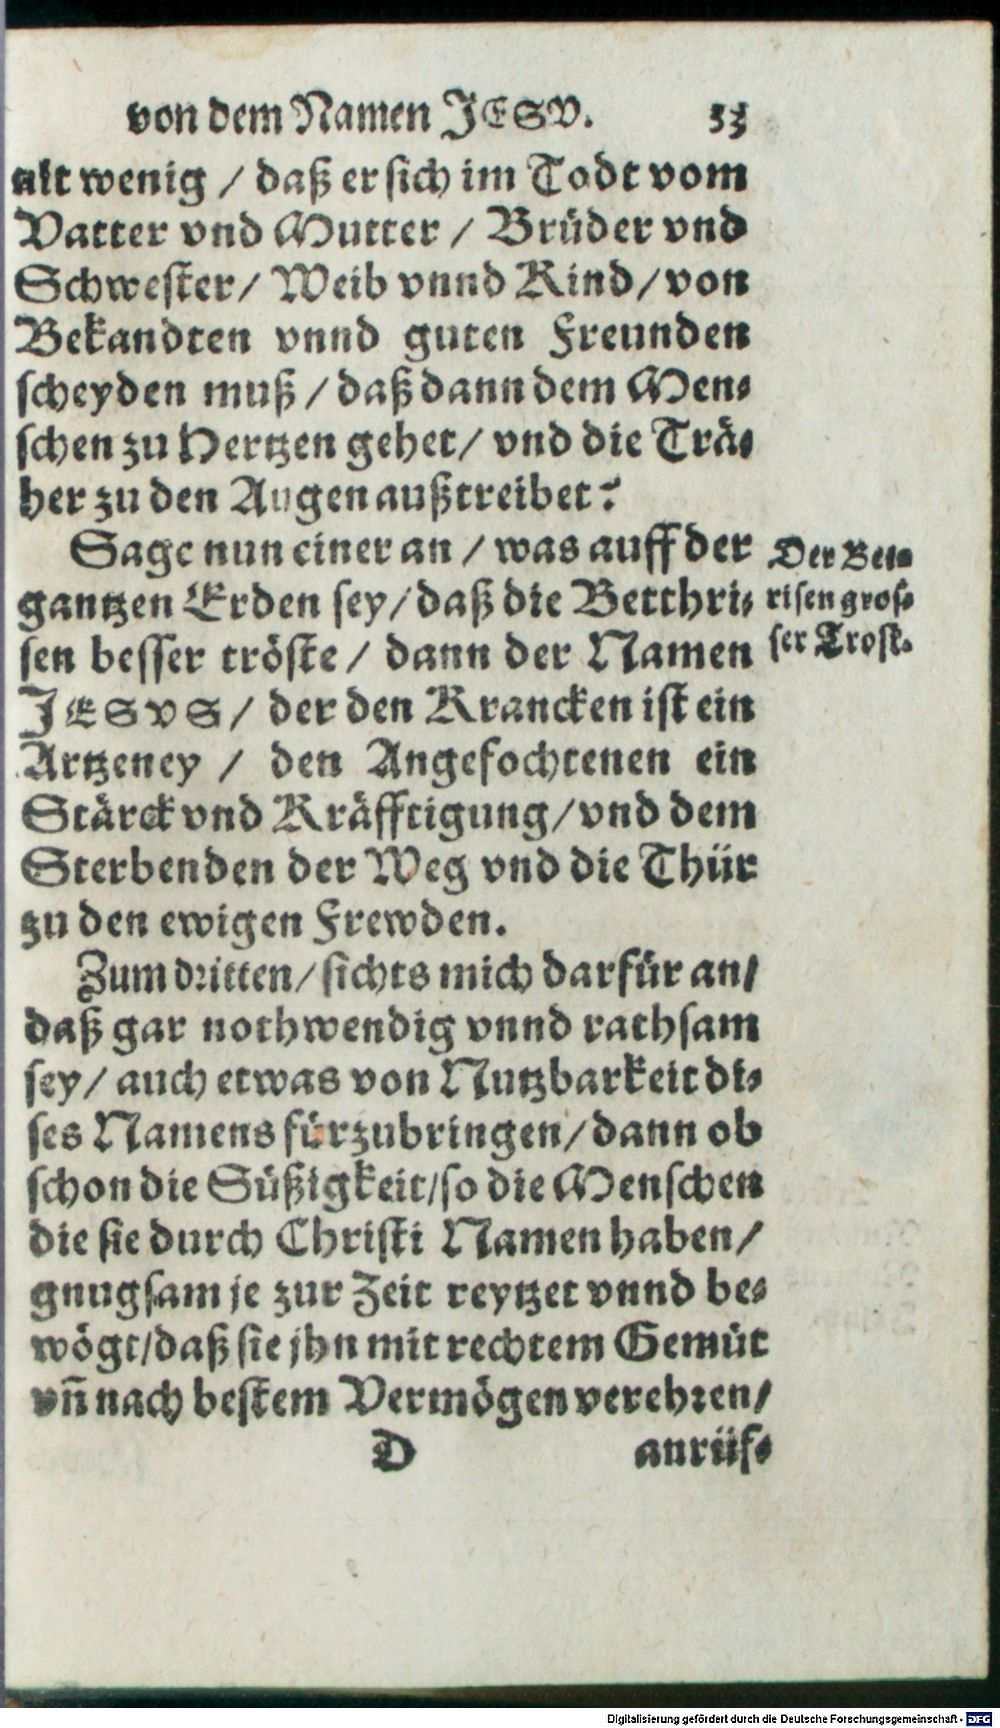 von dem Namen JESV. 33
nit wenig / daß er sich im Todt vom
Vatter vnd Mutter / Brüder vnd
Schwester / Weib vnnd Kind / von
Bekandten vnnd guten Freunden
scheyden muß / daß dann dem Men⸗
schen zu Hertzen gehet / vnd die Trä⸗
her zu den Augen außtreibet?
Sage nun einer an / was auff der
gantzen Erden sey / daß die Betthri⸗
sen besser tröste / dann der Namen
JESVS / der den Krancken ist ein
Artzeney / den Angefochtenen ein
Stärck vnd Kräfftigung / vnd dem
Sterbenden der Weg vnd die Thür
zu den ewigen Frewden.
Der Bet⸗
risen gros⸗
ser Trost.
Zum dritten / sichts mich darfür an /
daß gar nothwendig vnnd rathsam
sey / auch etwas von Nutzbarkeit di⸗
ses Namens fürzubringen / dann ob
schon die Süßigkeit / so die Menschen
die sie durch Christi Namen haben /
gnugsam je zur Zeit reytzet vnnd be⸗
wögt / daß sie jhn mit rechtem Gemüt
vn̄ nach bestem Vermögen verehren /
D anrüf⸗
Digitalisierung gefördert durch die Deutsche Forschungsgemeinschaft - DFG